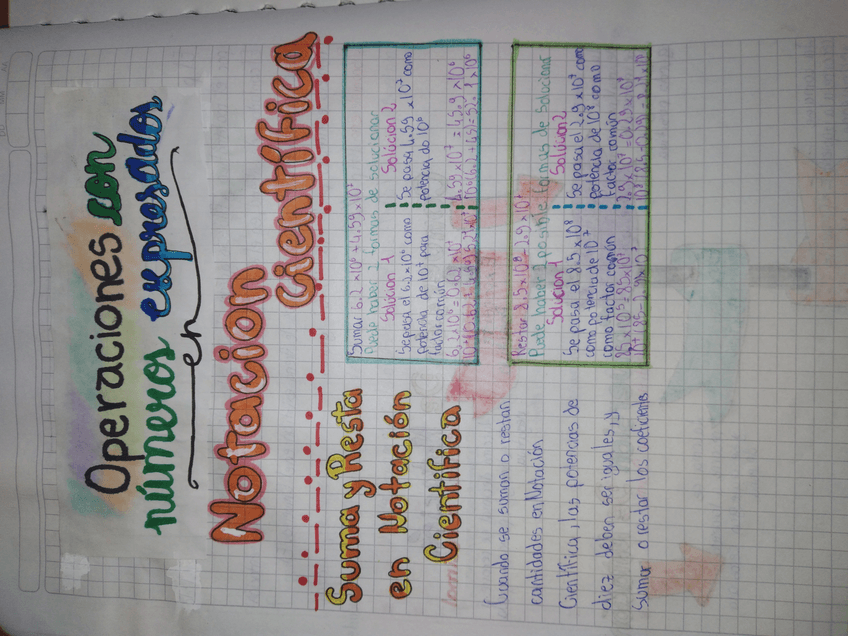 Operaciones con
números expresados
en
Notación
Científica
Suma y Resta
en Notación
Científica
Cuando se suman o restan
cantidades en Notación
Científica, las potencias de
diez deben ser iguales, y
sumar o restar los coeficiente
Sumar 6.2 x10⁶ + 4.59 x10⁷
Puede haber 2 formas de solucionar
Solución 1
Se pasa el 6.2 x10⁶ como
potencia de 10⁷ para
factor común
6.2 x10⁶ = 0.62 x10⁷
Solución 2
Se pasa 4.59 x10⁷ como
potencia de 10⁶
4.59 x10⁷ = 45.9 x10⁶
Restar 8.5 x10⁸ - 2.9 x10⁷
Puede haber 2 posible formas de solucionar
Solución 1
Se pasa el 8.5 x10⁸
como potencia de 10⁷
como factor común
Solución 2
Se pasa el 2.9 x10⁷ como
potencia de 10⁸ como
factor común
2.9 x10⁷ = 0.29 x10⁸